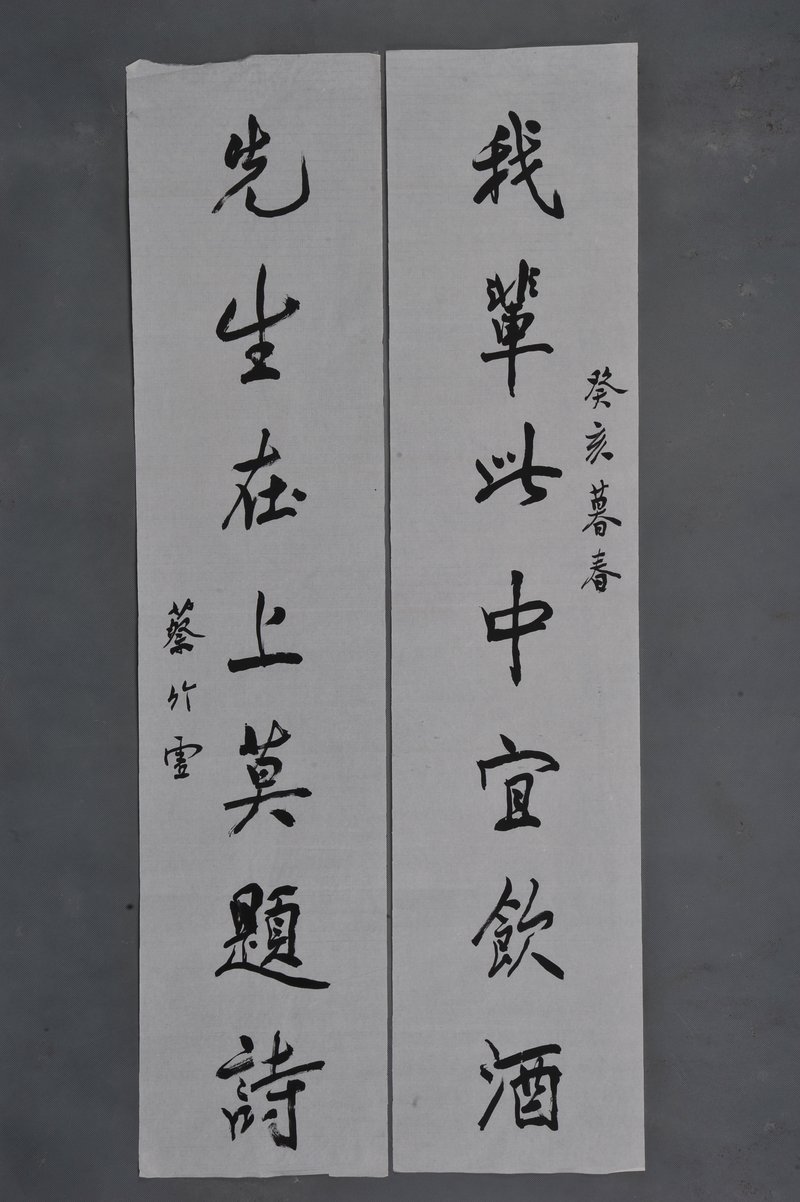 癸亥暮春
我輩此中宜飲酒
先生在上莫題詩
蔡竹雲